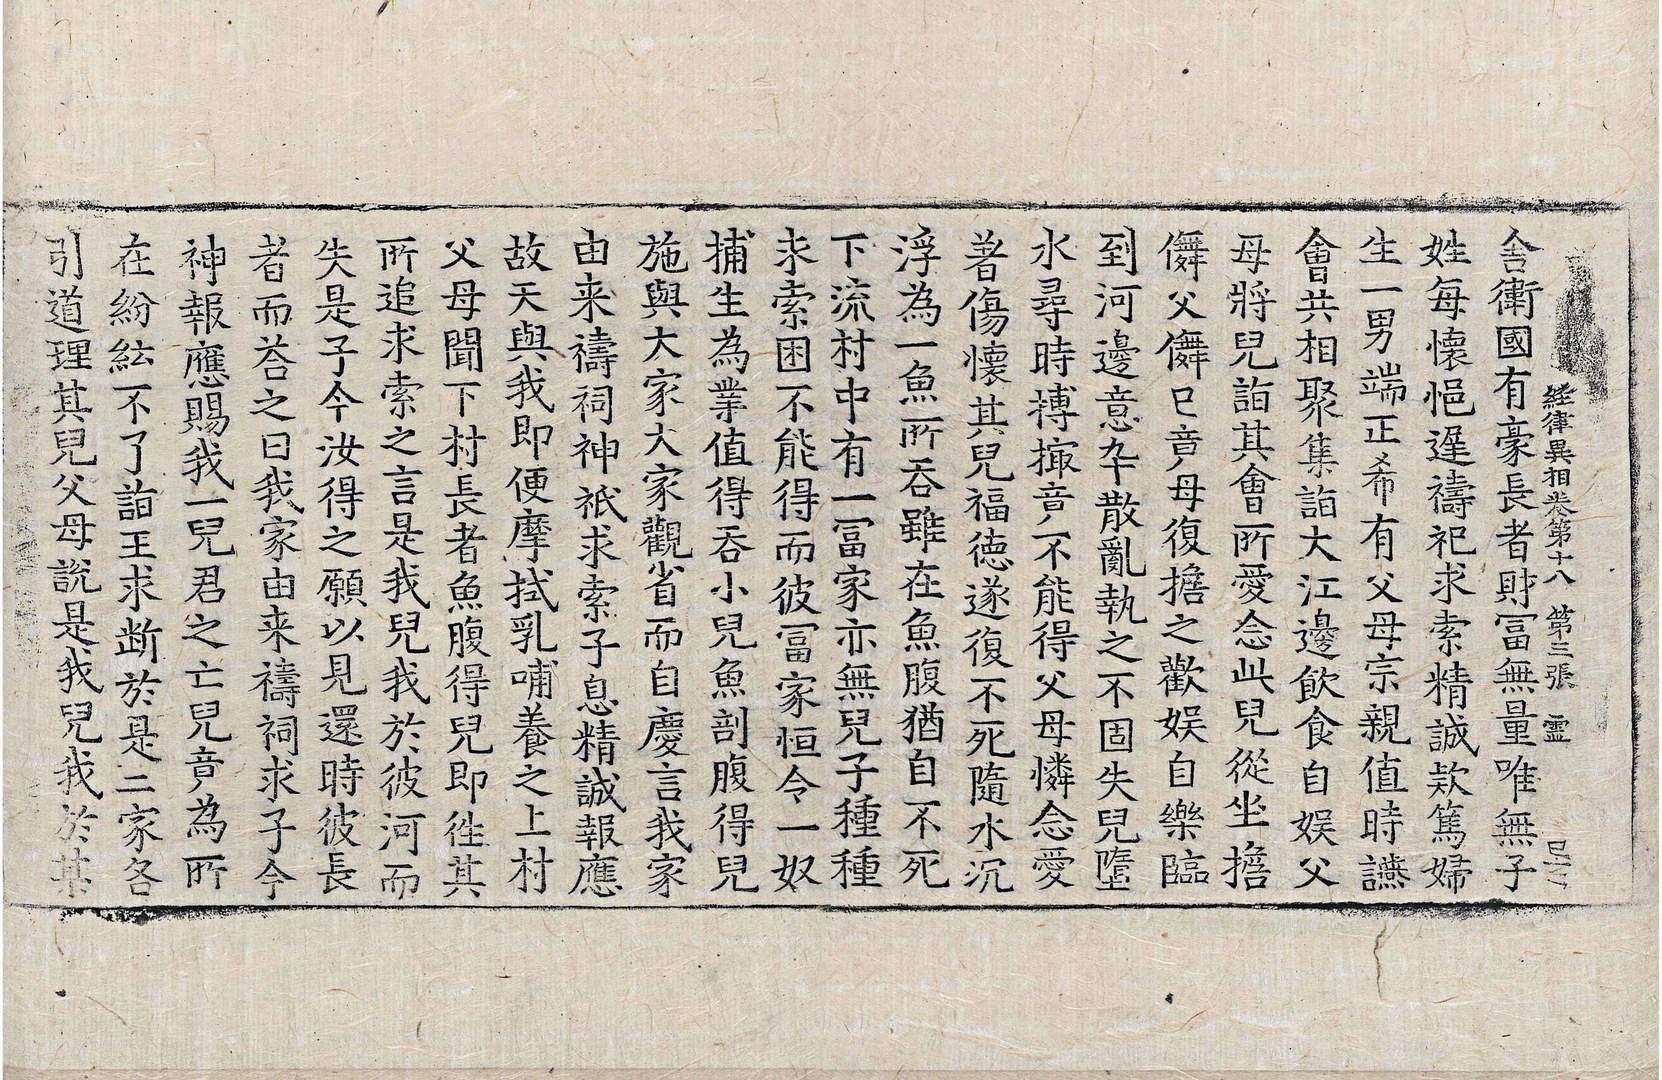 經律異相卷第十八 第三張 靈
舍衛國有豪長者財冨無量唯無子
姓每懷悒遲禱祀求索精誠欵篤婦
生一男端正希有父母宗親值時讌
會共相聚集詣大江邊飲食自娛父
母將兒詣其會所愛念此兒從坐擔
儛父儛已竟母復擔之歡娛自樂臨
到河邊意卒散亂執之不固失兒墮
水尋時搏掫竟不能得父母憐念愛
著傷懷其兒福德遂復不死隨水沉
浮為一魚所吞雖在魚腹猶自不死
下流村中有一冨家亦無兒子種種
求索困不能得而彼冨家恒令一奴
捕生為業值得吞小兒魚剖腹得兒
施與大家大家觀省而自慶言我家
由来禱祠神祇求索子息精誠報應
故天與我即便摩拭乳哺養之上村
父母聞下村長者魚腹得兒即徃其
所追求索之言是我兒我於彼河而
失是子今汝得之願以見還時彼長
者而荅之曰我家由来禱祠求子今
神報應賜我一兒君之亡兒竟為所
在紛紜不了詣王求断於是二家各
引道理其兒父母說是我兒我於某